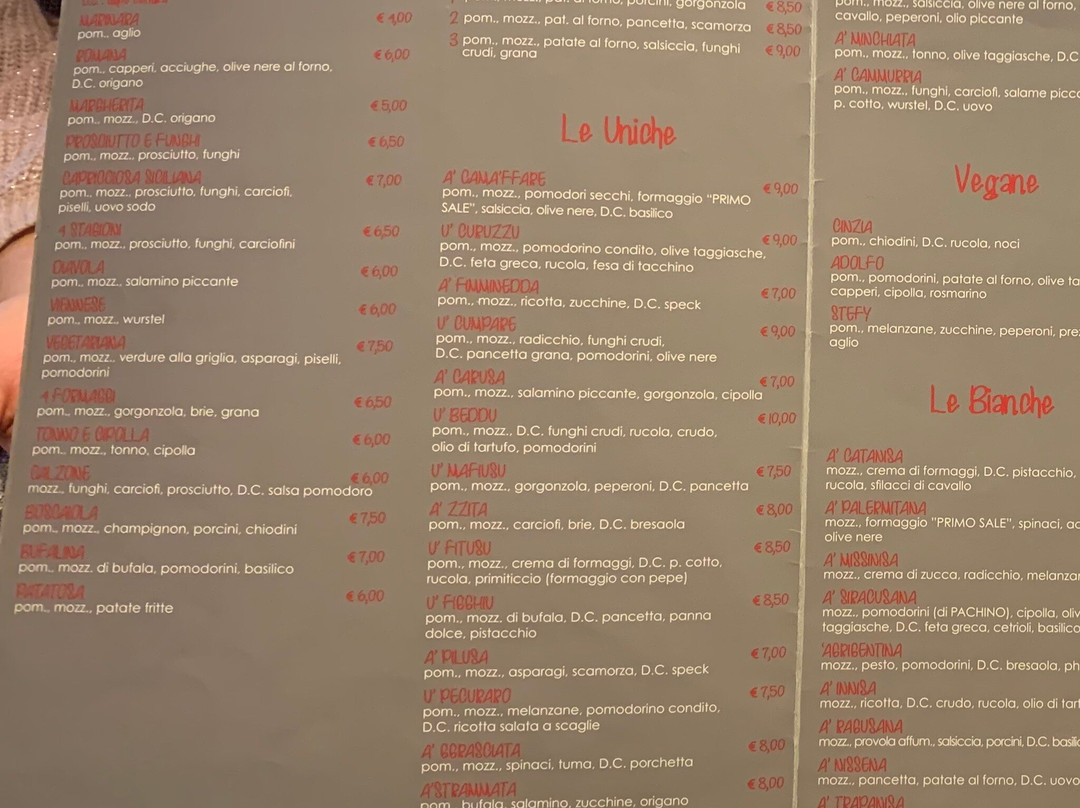 MARINARA € 4,00
pom., aglio
ROMANA € 6,00
pom., capperi, acciughe, olive nere al forno,
D.C. origano
MARGHERITA € 5,00
pom., mozz., D.C. origano
PROSCIUTTO E FUNGHI € 6,50
pom., mozz., prosciutto, funghi
CAPRICCIOSA SICILIANA € 7,00
pom., mozz., prosciutto, funghi, carciofi,
piselli, uovo sodo
4 STAGIONI € 6,50
pom., mozz., prosciutto, funghi, carciofini
DIAVOLA € 6,00
pom., mozz., salamino piccante
VIENNESE € 6,00
pom., mozz., wurstel
VEGETARIANA € 7,50
pom., mozz., verdure alla griglia, asparagi, piselli,
pomodorini
4 FORMAGGI € 6,50
pom., mozz., gorgonzola, brie, grana
TONNO E CIPOLLA € 6,00
pom., mozz., tonno, cipolla
CALZONE € 6,00
mozz., funghi, carciofi, prosciutto, D.C. salsa pomodoro
BOSCAIOLA € 7,50
pom., mozz., champignon, porcini, chiodini
BUFALINA € 7,00
pom., mozz. di bufala, pomodorini, basilico
PATATOSA € 6,00
pom., mozz., patate fritte
porcini, gorgonzola € 8,50
2 pom., mozz., pat. al forno, pancetta, scamorza € 8,50
3 pom., mozz., patate al forno, salsiccia, funghi € 9,00
crudi, grana
Le Uniche
A' CAMA'FFARE € 9,00
pom., mozz., pomodori secchi, formaggio "PRIMO
SALE", salsiccia, olive nere, D.C. basilico
U' CURUZZU € 9,00
pom., mozz., pomodorino condito, olive taggiasche,
D.C. feta greca, rucola, fesa di tacchino
A' FIMMINEDDA € 7,00
pom., mozz., ricotta, zucchine, D.C. speck
U' CUMPARE € 9,00
pom., mozz., radicchio, funghi crudi,
D.C. pancetta grana, pomodorini, olive nere
A' CARUSA € 7,00
pom., mozz., salamino piccante, gorgonzola, cipolla
U' BEDDU € 10,00
pom., mozz., D.C. funghi crudi, rucola, crudo,
olio di tartufo, pomodorini
U' MAFIUSU € 7,50
pom., mozz., gorgonzola, peperoni, D.C. pancetta
A' ZZITA € 8,00
pom., mozz., carciofi, brie, D.C. bresaola
U' FITUSU € 8,50
pom., mozz., crema di formaggi, D.C. p. cotto,
rucola, primiticcio (formaggio con pepe)
U' FIGGHIU € 8,50
pom., mozz. di bufala, D.C. pancetta, panna
dolce, pistacchio
A' PILUSA € 7,00
pom., mozz., asparagi, scamorza, D.C. speck
U' PECURARO € 7,50
pom., mozz., melanzane, pomodorino condito,
D.C. ricotta salata a scaglie
A' GGRASCIATA € 8,00
pom., mozz., spinaci, tuma, D.C. porchetta
A'STRAMMATA € 8,00
pom. bufala, salamino, zucchine, origano
pom., mozz., salsiccia, olive nere al forno,
cavallo, peperoni, olio piccante
A' MINCHIATA
pom., mozz., tonno, olive taggiasche, D.C
A' CAMMURRIA
pom., mozz., funghi, carciofi, salame picc
p. cotto, wurstel, D.C. uovo
Vegane
CINZIA
pom., chiodini, D.C. rucola, noci
ADOLFO
pom., pomodorini, patate al forno, olive ta
capperi, cipolla, rosmarino
STEFY
pom., melanzane, zucchine, peperoni, pre
aglio
Le Bianche
A' CATANISA
mozz., crema di formaggi, D.C. pistacchio,
rucola, sfilacci di cavallo
A' PALERMITANA
mozz., formaggio "PRIMO SALE", spinaci, ac
olive nere
A' MISSINISA
mozz., crema di zucca, radicchio, melanza
A' SIRACUSANA
mozz., pomodorini (di PACHINO), cipolla, oliv
taggiasche, D.C. feta greca, cetrioli, basilico
'AGRIGENTINA
mozz., pesto, pomodorini, D.C. bresaola, ph
A' INNISA
mozz., ricotta, D.C. crudo, rucola, olio di tart
A' RAGUSANA
mozz., provola affum., salsiccia, porcini, D.C. basilic
A' NISSENA
mozz., pancetta, patate al forno, D.C. uovo
A' TRAPANISA